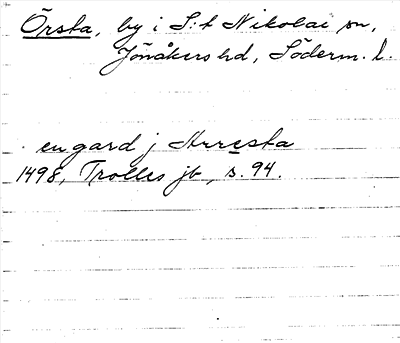 Örsta, by i S:t Nikolai sn,
Jönåkers hd, Söderm. l.
en gard j Hrresta
1498, Trolles jb, s. 94.